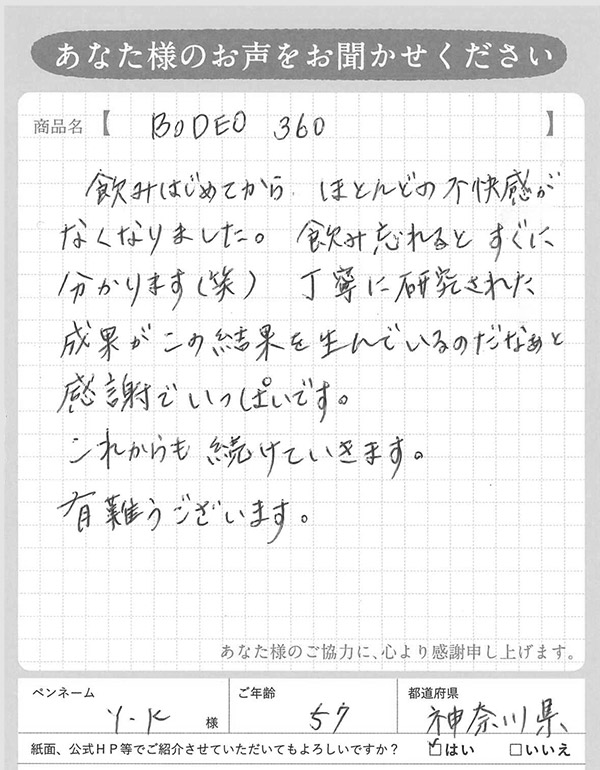 あなた様のお声をお聞かせください
商品名【 BODEO 360 】
飲みはじめてから ほとんどの不快感が
なくなりました。 飲み忘れると すぐに
分かります(笑) 丁寧に研究された
成果がこの結果を生んでいるのだなぁと
感謝でいっぱいです。
これからも 続けていきます。
有難うございます。
あなた様のご協力に、心より感謝申し上げます。
ペンネーム Y-K 様 ご年齢 57 都道府県 神奈川県
紙面、公式HP等でご紹介させていただいてもよろしいですか? ☑はい □いいえ